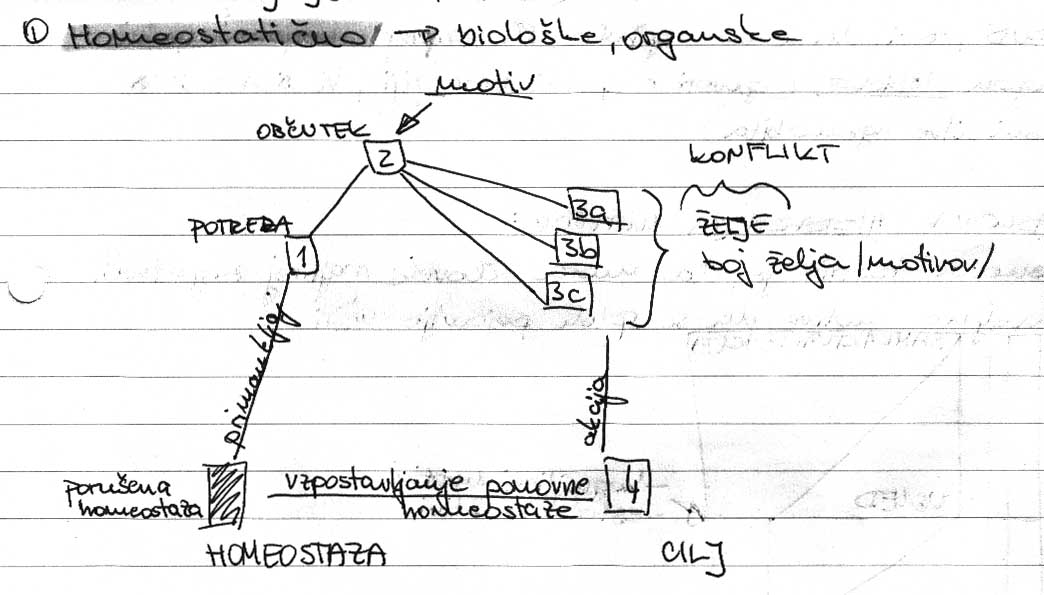 ① Homeostatično → biološke, organske
motiv
OBČUTEK
2
KONFLIKT
3a
ŽELJE
POTREBA
1
3b
boj želja/motivov/
3c
primanjkljaj
akcija
porušena
homeostaza
vzpostavljanje ponovne
homeostaze
4
HOMEOSTAZA
CILJ